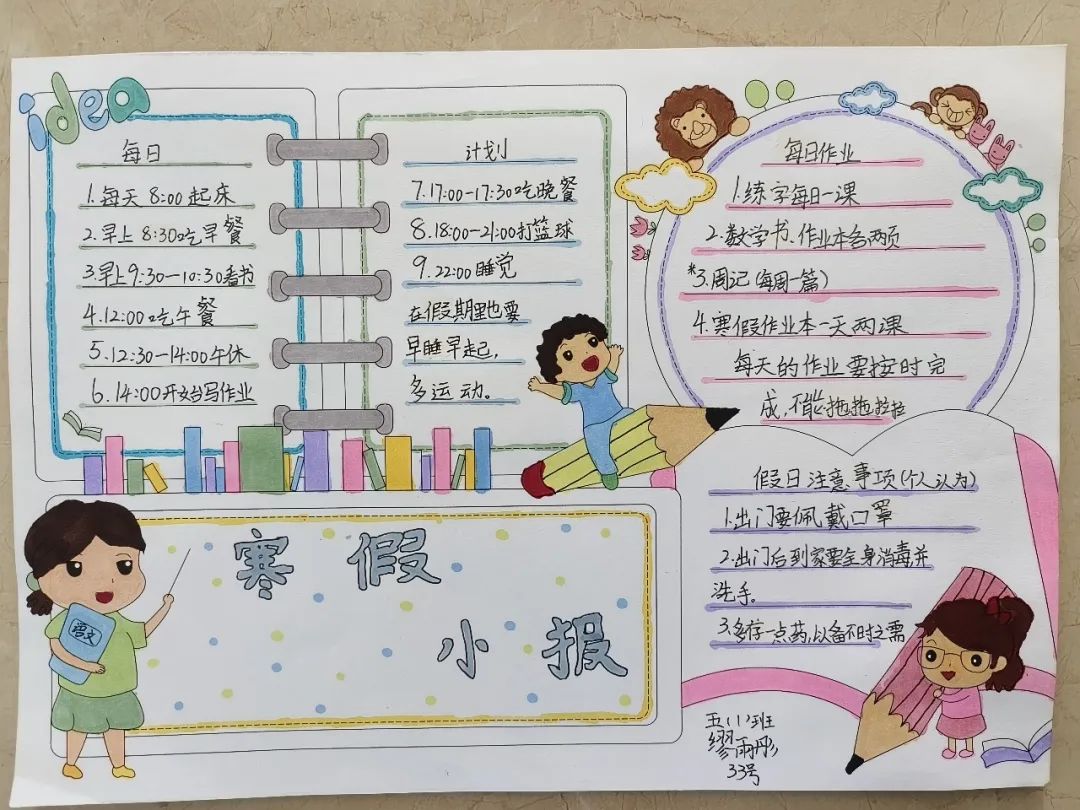 idea
每日
1.每天 8:00 起床
2.早上 8:30吃早餐
3.早上9:30—10:30看书
4.12:00吃午餐
5.12:30—14:00午休
6.14:00开始写作业
计划
7.17:00-17:30吃晚餐
8.18:00-21:00打篮球
9.22:00睡觉
在假期里也要
早睡早起，
多运动。
每日作业
1.练字每日一课
2.数学书、作业本各两页
*3.周记(每周一篇)
4.寒假作业本一天两课
每天的作业要按时完
成，不能拖拖拉拉
假日注意事项(个人认为)
1.出门要佩戴口罩
2.出门后到家要全身消毒并
洗手。
3.多存一点药,以备不时之需
语文
寒假
小报
五(1)班
缪雨彤
33号